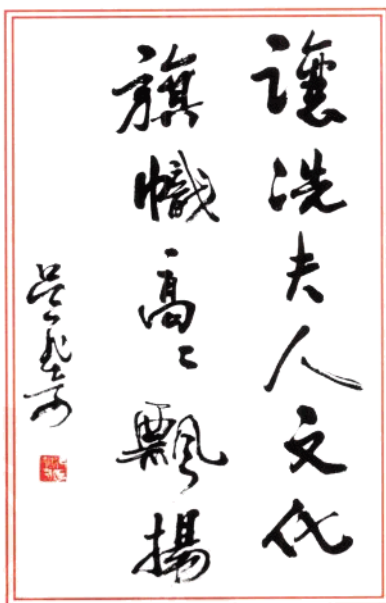 讓冼夫人文化
旗幟高々飄揚